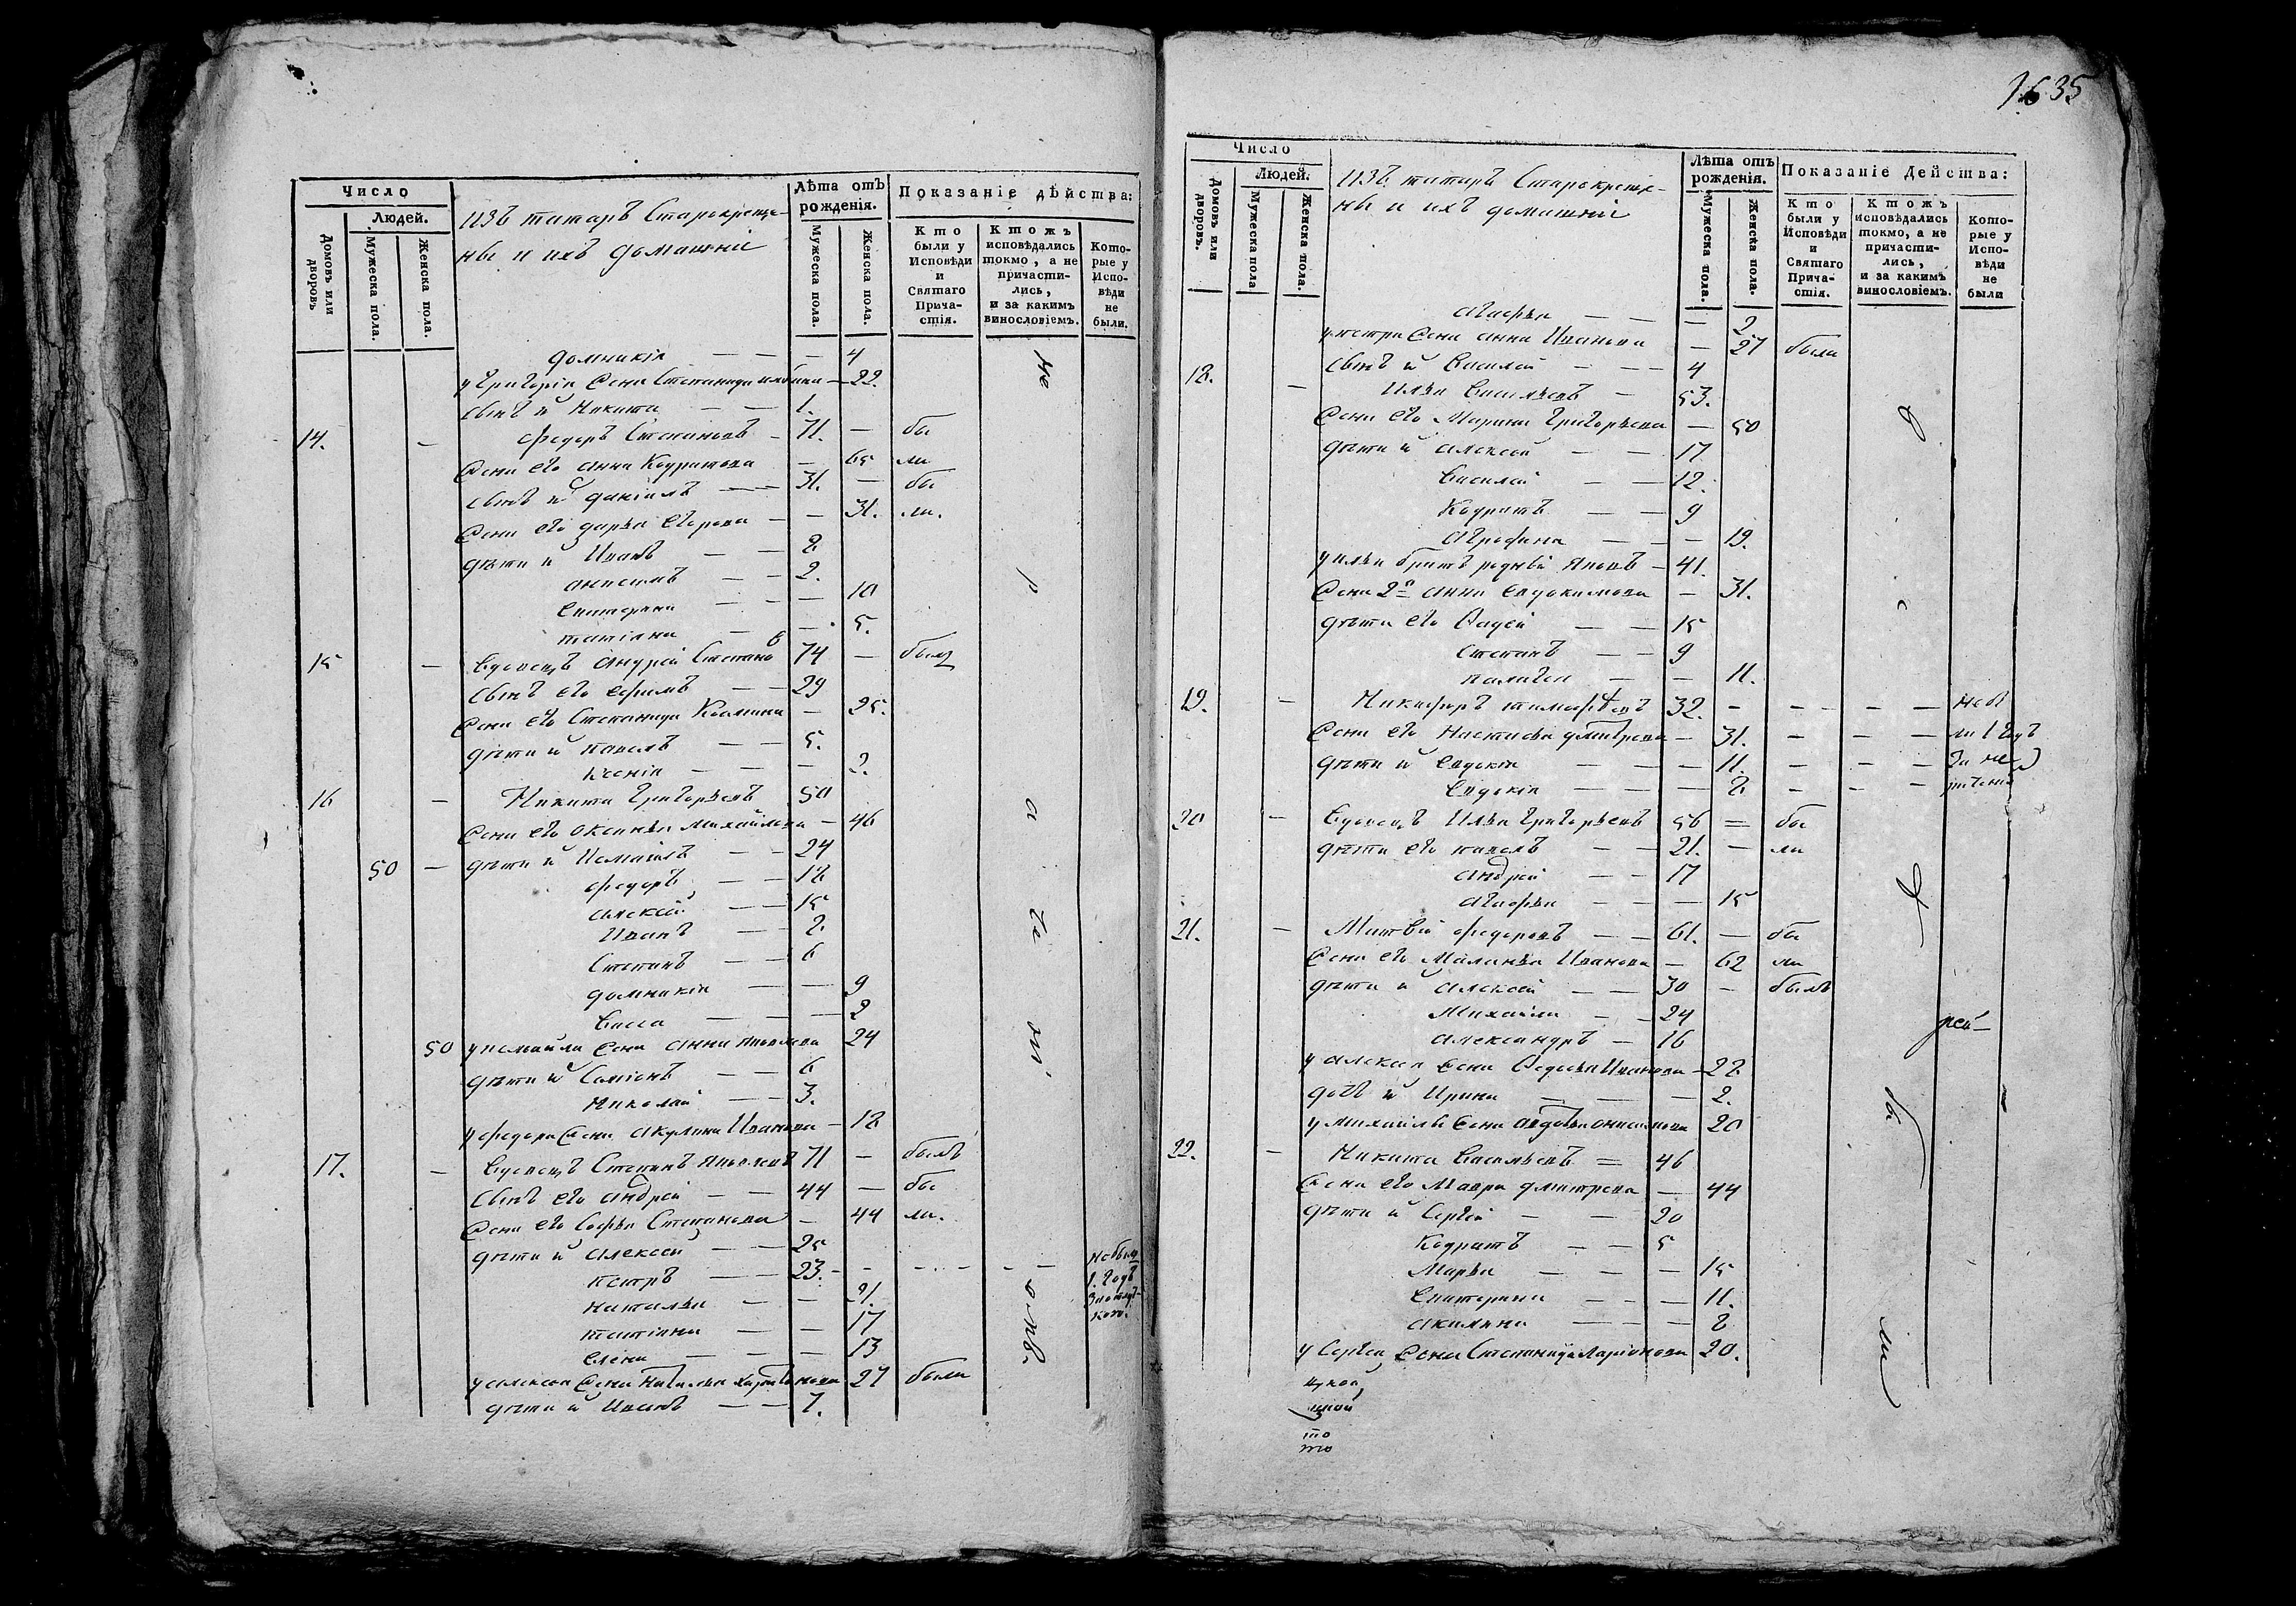 1635
Число
Людей.
Домовъ или дворовъ
Мужеска пола.
Женска пола.
изъ татаръ Старокреще-
ны и ихъ домашніи
Лѣта отъ рожденія.
Мужеска пола.
Женска пола.
Показаніе дѣйства:
Кто были у Исповѣди и Святаго Прича-стія.
Ктожъ исповѣдались токмо, а не причасти-лись, и за какимъ винословіемъ.
Кото-рые у Испо-вѣди не были.
домникія — — — 4
у Григорія жена Степанида — 22.
сынъ и Никита — — 1.
14. — Федоръ Степановъ — 71. — бы
жена его Анна Кодратова — 65 ли
сынъ и Даніилъ — — 31. — бы
жена его дарья Егорова — — 31. ли.
дѣти и Иванъ — — 8
анисимъ — — 2.
Екатерина — — — 10
татіяна — — 5.
15 — Вдовецъ Андрей Степановъ 74 — былъ
сынъ его Ефимъ — — 29
жена его Степанида Козмина — 25.
дѣти и павелъ — — 5.
Ксенія — — — 2.
16 — Никита Григорьевъ 50
жена его оксинья михайлова — 46
50 — дѣти и Исмаилъ — — 24
федоръ — — 18
алексей — — 15
Иванъ — — 8
Степанъ — — 6
домникія — — 9
Васса — — — 2
50 у исмаила жена Анна Яковлева 24
дѣти и Семіонъ — — 6
Николай — — 3.
у федора жена акулина Иванова — 18
17. — Вдовецъ Степанъ Яковлевъ 71 — былъ
сынъ его андрей — — 44 — бы
жена его Софья Степанова — 44 ли.
дѣти и алексей — — 25
петръ — — 23. — — — — — не былъ
1. годъ
наталья — — 21.
татіяна — — 17
елена — — — 13
у алексея жена Наталья Харитонова 27 была
дѣти и Иванъ — — 7.
Число
Людей.
Домовъ или дворовъ.
Мужеска пола
Женска пола.
изъ татаръ Старокреще-
ны и ихъ домашніи
Лѣта отъ рожденія.
Мужеска пола.
Женска пола.
Показаніе Дейсшва:
Кто были у Исповѣди и Святаго Прича-стія.
Ктожъ исповѣдались токмо, а не причасти-лись, и за какимъ винословіемъ.
Кото-рые у Испо-вѣди не были
агафья — — — 2
у петра жена анна Иванова — 27 была
сынъ и Василей — — — 4
18. — Илья Васильевъ — 53.
жена его Марина Григорьева — 50
дѣти и алексей — — 17
Василей — — 12.
Кодратъ — — 9
Аграфина — — — 19.
у ильи братъ родный Яковъ — 41.
жена 2я анна Евдокимова — 31.
дѣти его — — 15
Степанъ — — 9
палагея — — 11.
19. — Никифоръ тимофѣевъ 32. — — — — не бы
жена его Настасья дмитрева — 31. — — — ли 1 годъ
дѣти и Евдокія — — — 11. — — — за не
Евдокія — — — 8 — — —
20 — Вдовецъ Илья Григорьевъ 56 — бы
дѣти его павелъ — — 21. — ли
Андрей — — 17
агафья — — — 15
21. — Матвей федоровъ — — 61. — бы
жена его Маланья Иванова — 62 ли
дѣти и алексей — — 30 — былъ
Михайла — — 24
александръ — 16
у алексея жена Федосья Иванова — 22
дочь и Ирина — — — 2.
у михайлы жена авдотья анисимова 20
22. — Никита Васильевъ — 46
жена его Мавра дмитрева — 44
дѣти и Сергѣй — — 20
Кодратъ — — 5
Марья — — — 15
Екатерина — — — 11.
акилина — — — 8
у Сергея жена Степанида Ларіонова 20.
рей-